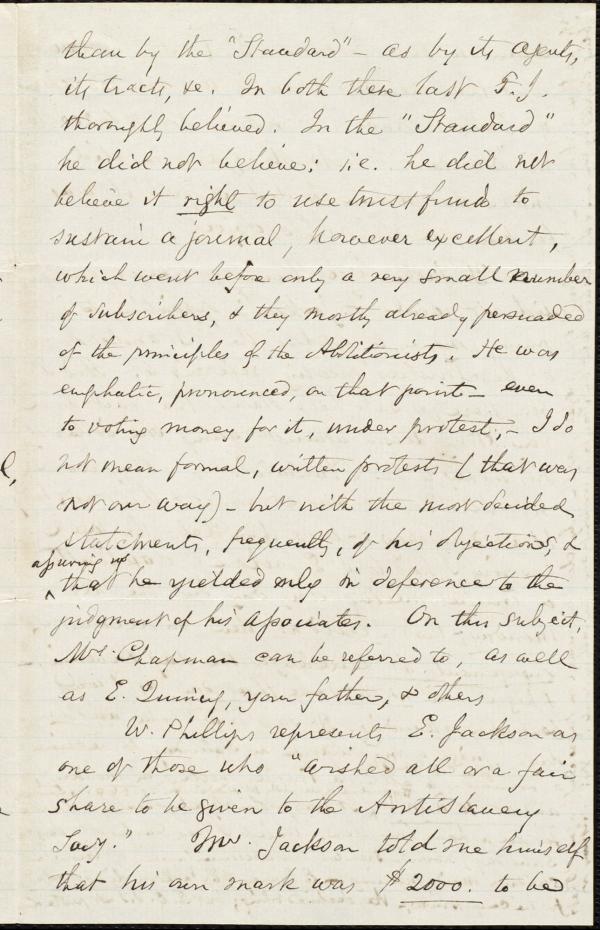 than by the "Standard" – as by its agents,
its tracts, &c. In both these last F. J.
thoroughly believed. In the "Standard"
he did not believe; i.e. he did not
believe it right to use trust funds to
sustain a journal, however excellent,
which went before only a very small number
of subscribers, & they mostly already persuaded
of the principles of the Abolitionists. He was
emphatic, pronounced, on that point – even
to voting money for it, under protest; – I do
not mean formal, written protests (that was
not our way) – but with the most decided
statements, frequently, of his objections, &
assuring us
^ that he yielded only in deference to the
judgment of his associates. On this subject,
Mrs. Chapman can be referred to, as well
as E. Quincy, your father, & others
W. Phillips represents E. Jackson as
one of those who "wished all or a fair
share to be given to the Antislavery
Socy." Mr. Jackson told me himself
that his own mark was $2000. to be